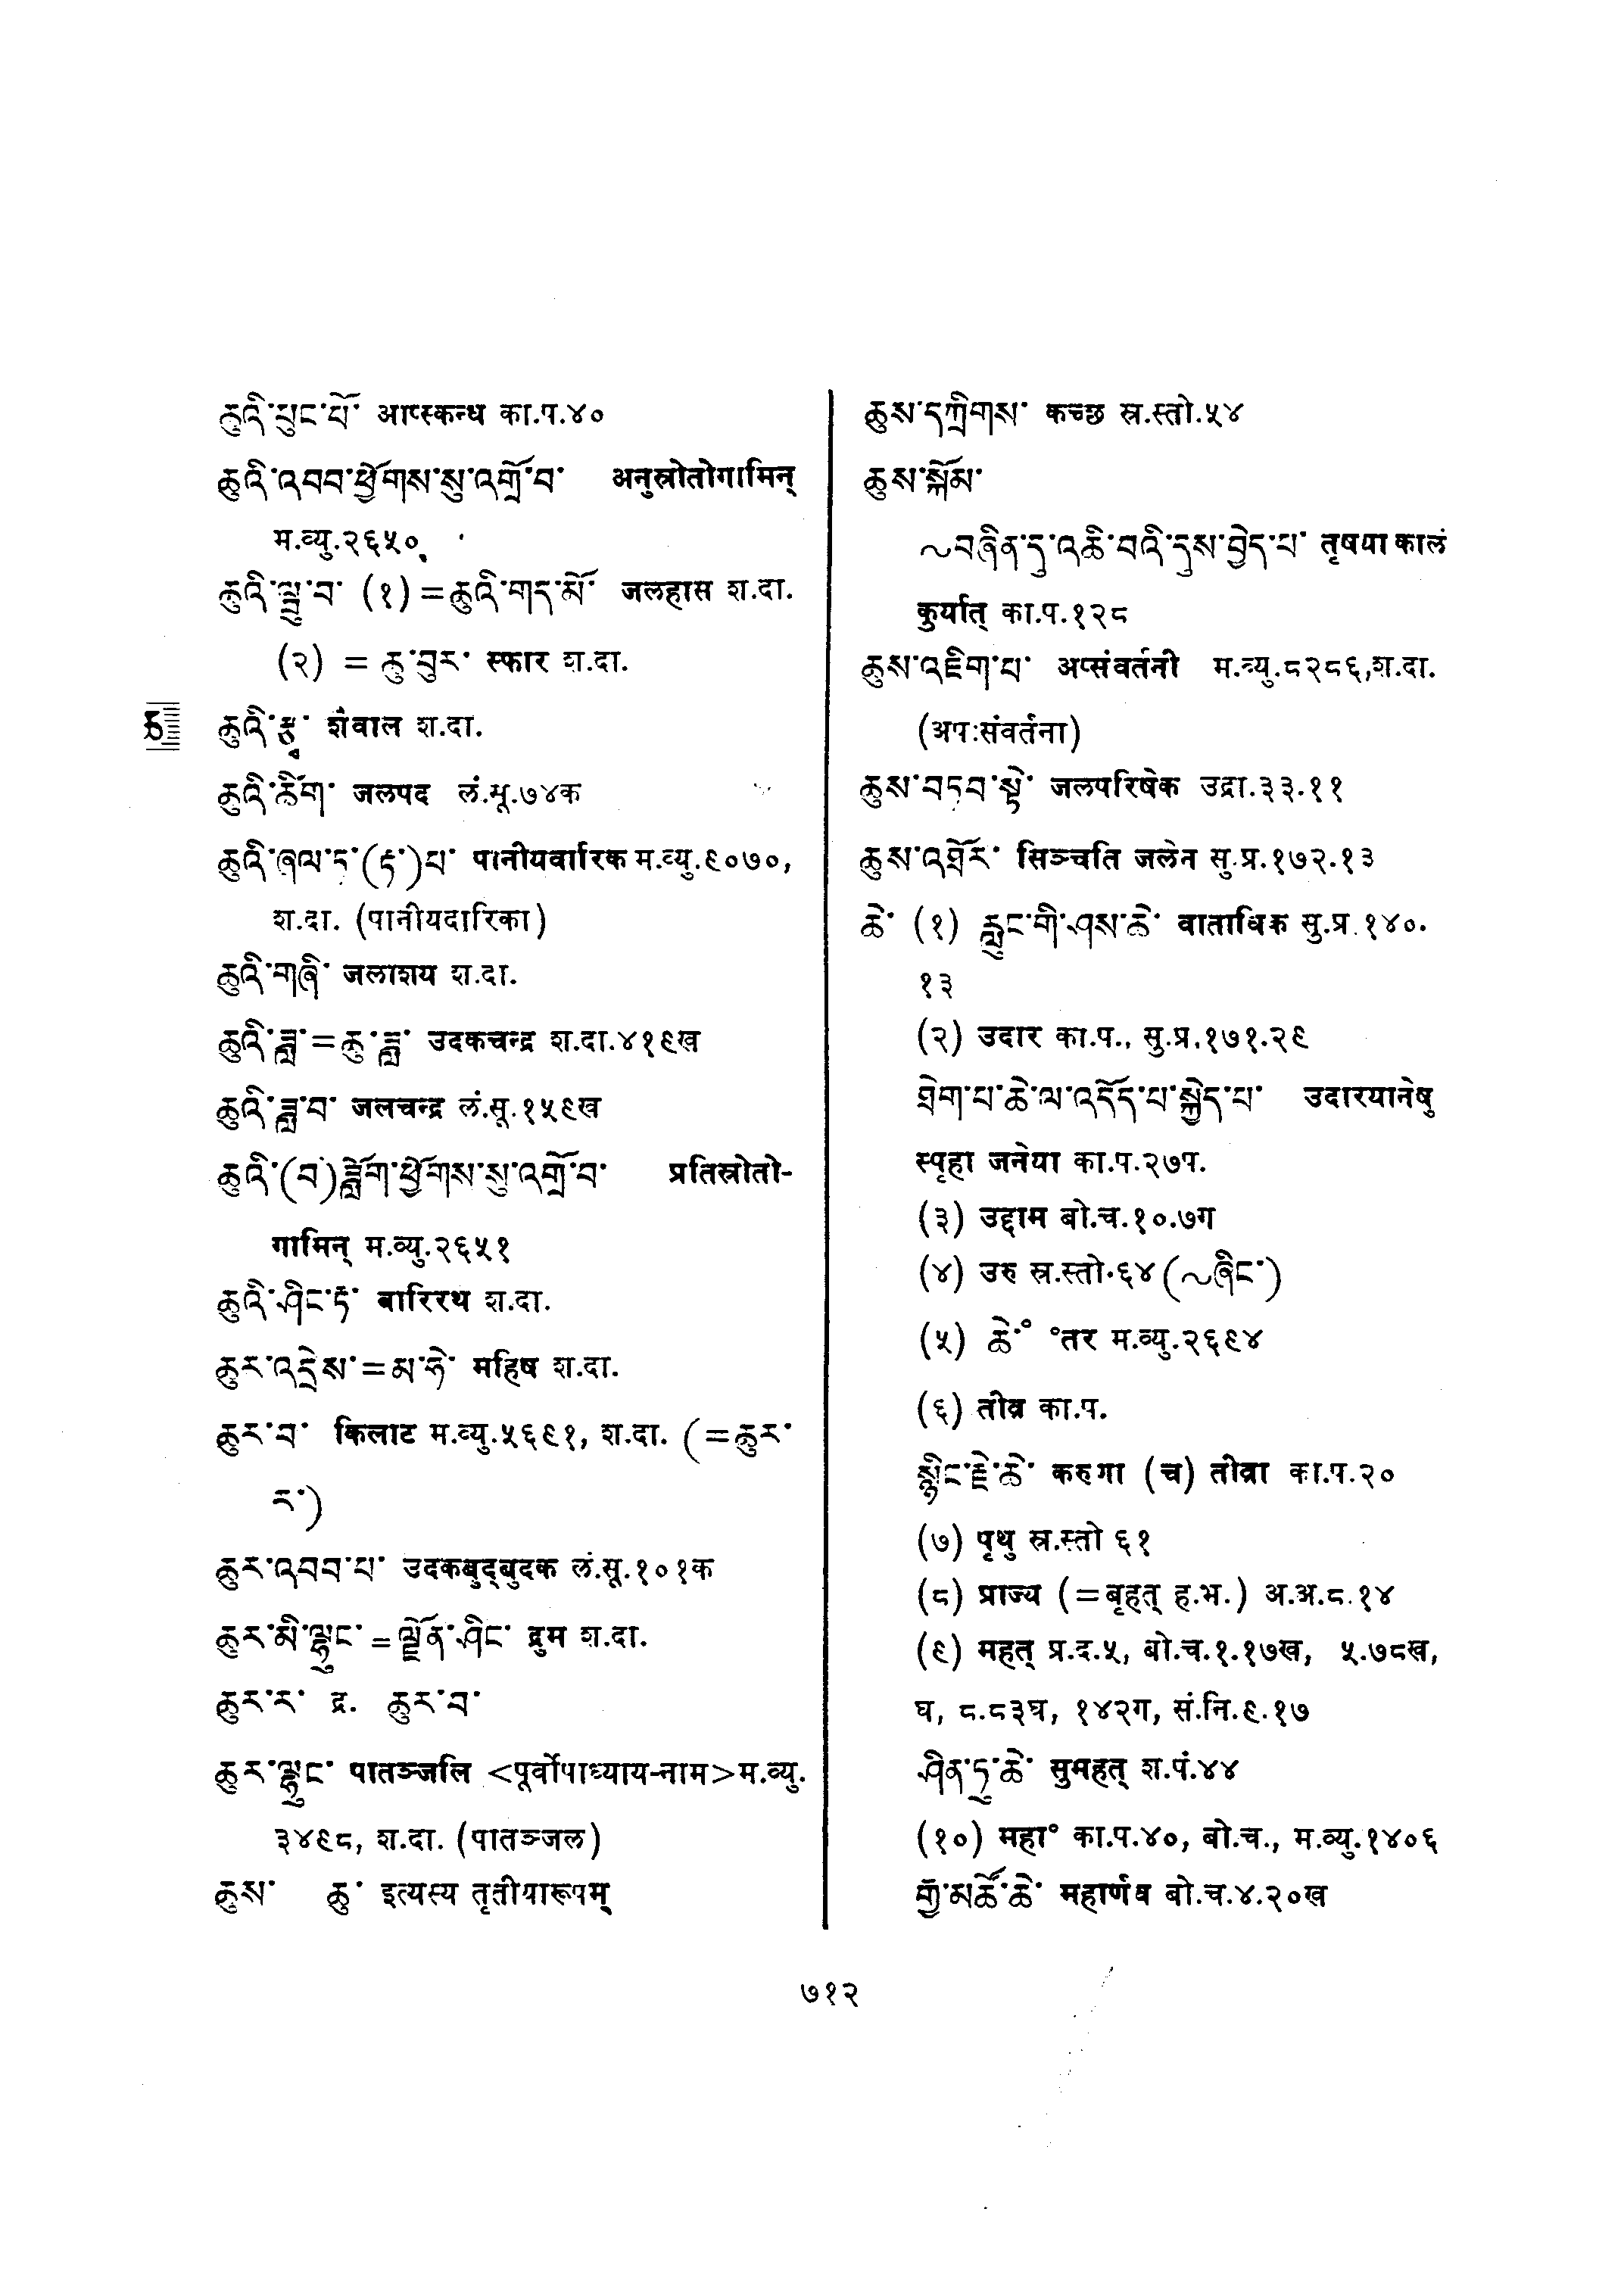 ཆུའི་ཕུང་པོ་ आप्स्कन्ध का.प.४०
ཆུའི་འབབ་ཕྱོགས་སུ་འགྲོ་བ་ अनुस्रोतोगामिन्
म.व्यु.२६५०
ཆུའི་ལྦུ་བ་ (१) =ཆུའི་གད་མོ་ जलहास श.दा.
(२) = ཆུ་བུར་ स्फार श.दा.
ཆ
ཆུའི་རྩྭ་ शैवाल श.दा.
ཆུའི་ཚིག་ जलपद लं.सू.७४क
ཆུའི་ཞལ་ད་(ཏ་)པ་ पानीयवारिक म.व्यु.९०७०,
श.दा. (पानीयदारिका)
ཆུའི་གཞི་ जलाशय श.दा.
ཆུའི་ཟླ་=ཆུ་ཟླ་ उदकचन्द्र श.दा.४१९ख
ཆུའི་ཟླ་བ་ जलचन्द्र लं.सू.१५९ख
ཆུའི་(བ)ཟློག་ཕྱོགས་སུ་འགྲོ་བ་ प्रतिस्रोतो-
गामिन् म.व्यु.२६५१
ཆུའི་ཤིང་ཏ་ बारिरथ श.दा.
ཆུར་འདྲེས་=མ་ཧེ་ महिष श.दा.
ཆུར་བ་ किलाट म.व्यु.५६९१, श.दा. (=ཆུར་
ར་)
ཆུར་འབབ་པ་ उदकबुद्बुदक लं.सू.१०१क
ཆུར་མི་ལྷུང་=ལྗོན་ཤིང་ द्रुम श.दा.
ཆུར་ར་ द्र. ཆུར་བ་
ཆུར་ལྷུང་ पातञ्जलि <पूर्वोपाध्याय-नाम>म.व्यु.
३४९८, श.दा. (पातञ्जल)
ཆུས་ ཆུ་ इत्यस्य तृतीयारूपम्
ཆུས་དཀྲིགས་ कच्छ स्र.स्तो.५४
ཆུས་སྐོམ་
~བཞིན་དུ་འཆི་བའི་དུས་བྱེད་པ་ तृषया कालं
कुर्यात् का.प.१२८
ཆུས་འཇིག་པ་ अप्संवर्तनी म.व्यु.८२८६,श.दा.
(अपःसंवर्तना)
ཆུས་བཏབ་སྟེ་ जलपरिषेक उद्रा.३३.११
ཆུས་འཐོར་ सिञ्चति जलेन सु.प्र.१७२.१३
ཆེ་ (१) རླུང་གི་ཤས་ཆེ་ वाताधिक सु.प्र.१४०.
१३
(२) उदार का.प., सु.प्र.१७१.२९
ཐེག་པ་ཆེ་ལ་འདོད་པ་སྐྱེད་པ་ उदारयानेषु
स्पृहा जनेया का.प.२७प.
(३) उद्दाम बो.च.१०.७ग
(४) उरु स्र.स्तो.६४(~ཞིང་)
(५) ཆེ་° °तर म.व्यु.२६९४
(६) तीव्र का.प.
སྙིང་རྗེ་ཆེ་ करुणा (च) तीव्रा का.प.२०
(७) पृथु स्र.स्तो ६१
(८) प्राज्य (=बृहत् ह.भ.) अ.अ.८.१४
(९) महत् प्र.द.५, बो.च.१.१७ख, ५.७८ख,
घ, ८.८३घ, १४२ग, सं.नि.९.१७
ཤིན་ཏུ་ཆེ་ सुमहत् श.पं.४४
(१०) महा° का.प.४०, बो.च., म.व्यु.१४०६
རྒྱ་མཚོ་ཆེ་ महार्णव बो.च.४.२०ख
७१२